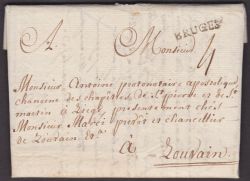 BRUGES
A. Monsieur 4
Monsieur Antoine protonotaire apostolique
chanoine des chapitres de St pierre et de St
martin à Liege presentement chés
Monsieur Marci president et chancellier
de Louvain &a.
à
Louvain.